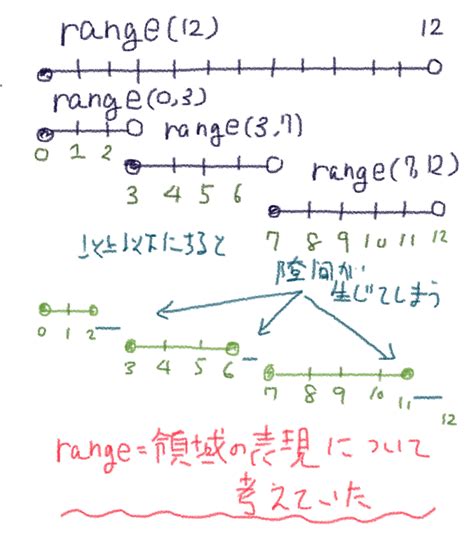 range(12)
12
range(0,3)
range(3,7)
0 1 2
range(7,12)
3 4 5 6
7 8 9 10 11 12
以上以下にすると
隙間が
生じてしまう
0 1 2
3 4 5 6
7 8 9 10 11
12
range=領域の表現について
考えていた